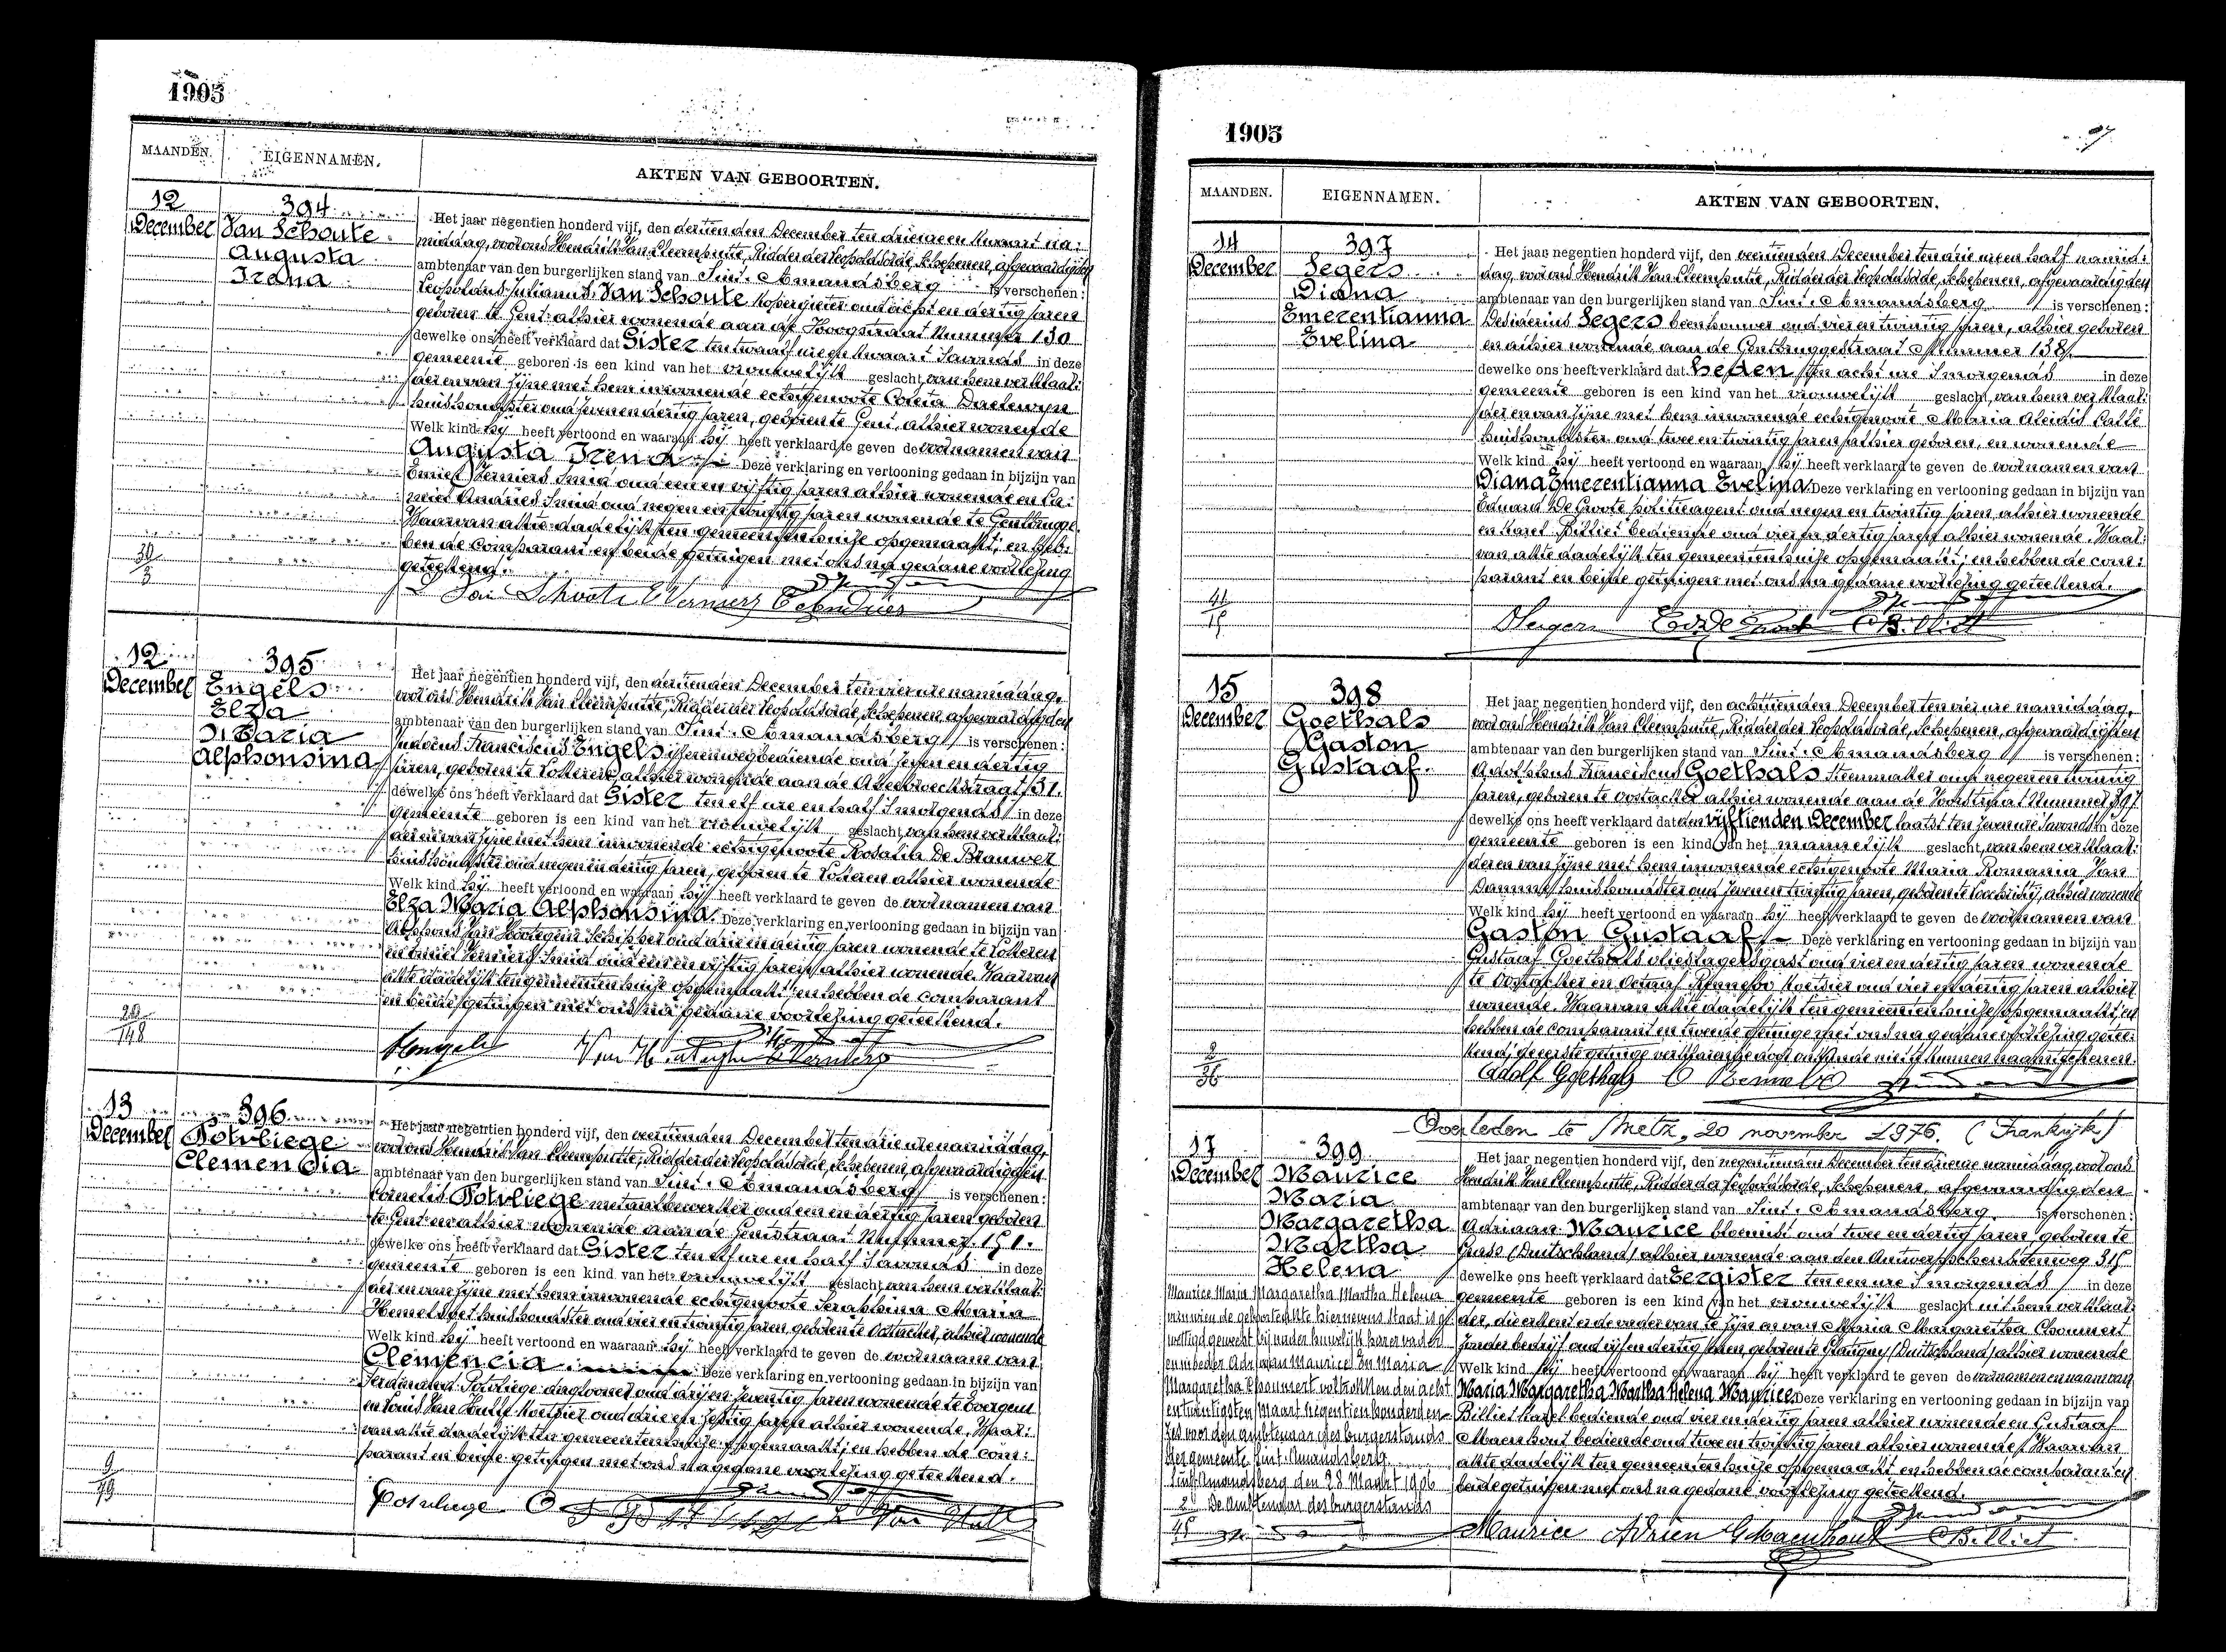 1905
MAANDEN. EIGENNAMEN. AKTEN VAN GEBOORTEN.
12 December
394
Van Schoute
Augusta
Irena
Het jaar negentien honderd vijf, den dertienden December ten drie ure en kwaart na:
middag, voor ons Hendrik Van Cleemputte, Ridder der Leopoldsorde, Schepenen, afgevaardigden
ambtenaar van den burgerlijken stand van Sint-Amandsberg is verschenen:
Leopoldus Julianus Van Schoute kopergieter oud acht en dertig jaren
geboren te Gent alhier wonende aan de Hoogstraat Nummer 130
dewelke ons heeft verklaard dat Gister ten twaalf ure en kwaart savonds in deze
gemeente geboren is een kind van het vrouwelijk geslacht, van hem verklaar:
der en van zijne met hem inwonende echtgenoote Coleta Daelewyn
huishoudster oud zeven en dertig jaren, geboren te Gent, alhier wonende
Welk kind hij heeft vertoond en waaraan hij heeft verklaard te geven de voornamen van
Augusta Irena Deze verklaring en vertooning gedaan in bijzijn van
Emiel Verniers Smid oud een en vijftig jaren alhier wonende en Ca:
miel Andries Smid oud negen en twintig jaren wonende te Gentbrugge.
Waarvan akte dadelijk ten gemeentenhuize opgemaakt; en heb:
ben de comparant en beide getuigen met ons na gedane voorlezing
geteekend.
30/3
Van Schoute E Verniers C Andries
12 December
395
Engels
Elza
Maria
Alphonsina
Het jaar negentien honderd vijf, den dertienden December ten vier ure namiddag,
voor ons Hendrik Van Cleemputte, Ridder der Leopoldsorde, Schepenen, afgevaardigden
ambtenaar van den burgerlijken stand van Sint-Amandsberg is verschenen:
Judocus Franciscus Engels ijzerenwegbediende oud zeven en dertig
jaren, geboren te Lotteren alhier wonende aan de 31.
dewelke ons heeft verklaard dat Gister ten elf ure en half s'morgends in deze
gemeente geboren is een kind van het vrouwelijk geslacht, van hem verklaar:
der en van zijne met hem inwonende echtgenoote Rosalia De Brauwer
huishoudster oud negen en dertig jaren, geboren te Lotteren alhier wonende
Welk kind hij heeft vertoond en waaraan hij heeft verklaard te geven de voornamen van
Elza Maria Alphonsina. Deze verklaring en vertooning gedaan in bijzijn van
Alphons Van Schipper oud drie en dertig jaren wonende te Lotteren
en Emiel Verniers Smid oud een en vijftig jaren alhier wonende. Waarvan
akte dadelijk ten gemeentenhuize opgemaakt en hebben de comparant
en beide getuigen met ons na gedane voorlezing geteekend.
20/148
13 December
396
Potvliege
Clemencia
Het jaar negentien honderd vijf, den veertienden December ten drie ure namiddag,
voor ons Hendrik Van Cleemputte, Ridder der Leopoldsorde, Schepenen, afgevaardigden
ambtenaar van den burgerlijken stand van Sint-Amandsberg is verschenen:
Cornelis Potvliege metaalbewerker oud een en dertig jaren geboren
te Gent en alhier wonende aan de Gentstraat Nummer 151.
dewelke ons heeft verklaard dat Gister ten elf ure en half s'avonds in deze
gemeente geboren is een kind van het vrouwelijk geslacht, van hem verklaar:
der en van zijne met hem inwonende echtgenoote Seraphina Maria
Hemelsoet huishoudster oud vier en twintig jaren, geboren te Oostacker, alhier wonende
Welk kind hij heeft vertoond en waaraan hij heeft verklaard te geven de voornaam van
Clemencia. Deze verklaring en vertooning gedaan in bijzijn van
Ferdinand Potvliege daglooner oud drij en zeventig jaren wonende te Evergem
en Louis Van Hulle koetsier oud drie en zestig jaren alhier wonende. Waar:
van akte dadelijk ten gemeentenhuize opgemaakt; en hebben de com:
parant en beide getuigen met ons na gedane voorlezing geteekend.
9/79
Potvliege
1905
MAANDEN. EIGENNAMEN. AKTEN VAN GEBOORTEN.
14 December
397
Segers
Diana
Emerentianna
Evelina
Het jaar negentien honderd vijf, den veertienden December ten drie ure en half namid:
dag, voor ons Hendrik Van Cleemputte, Ridder der Leopoldsorde, Schepenen, afgevaardigden
ambtenaar van den burgerlijken stand van Sint-Amandsberg is verschenen:
Desiderius Segers beenhouwer oud vier en twintig jaren, alhier geboren
en alhier wonende aan de Gentbruggestraat Nummer 138.
dewelke ons heeft verklaard dat heden ten acht ure s'morgends in deze
gemeente geboren is een kind van het vrouwelijk geslacht, van hem verklaar:
der en van zijne met hem inwonende echtgenoote Maria Aleidis Calle
huishoudster oud twee en twintig jaren alhier geboren, en wonende
Welk kind hij heeft vertoond en waaraan hij heeft verklaard te geven de voornamen van
Diana Emerentianna Evelina. Deze verklaring en vertooning gedaan in bijzijn van
Eduard De Groote politieagent oud negen en twintig jaren alhier wonende
en Karel Billiet bediende oud vier en dertig jaren alhier wonende. Waar:
van akte dadelijk ten gemeentenhuize opgemaakt; en hebben de com:
parant en beide getuigen met ons na gedane voorlezing geteekend.
41/15
DSegers C Billiet
15 December
398
Goethals
Gaston
Gustaaf
Het jaar negentien honderd vijf, den achttienden December ten vier ure namiddag,
voor ons Hendrik Van Cleemputte, Ridder der Leopoldsorde, Schepenen, afgevaardigden
ambtenaar van den burgerlijken stand van Sint-Amandsberg is verschenen:
Adolphus Franciscus Goethals Steenmaker oud negen en twintig
jaren, geboren te Oostacker alhier wonende aan de Nummer 397
dewelke ons heeft verklaard dat den vijftienden December laatst ten zeven ure s'avonds in deze
gemeente geboren is een kind van het mannelijk geslacht, van hem verklaar:
deren van zijne met hem inwonende echtgenoote Maria Romania Van
Damme huishoudster oud zeven en twintig jaren, geboren te Loochristy, alhier wonende
Welk kind hij heeft vertoond en waaraan hij heeft verklaard te geven de voornamen van
Gaston Gustaaf Deze verklaring en vertooning gedaan in bijzijn van
Gustaaf Goethals oud vier en dertig jaren wonende
te Oostacker en Octaaf koetsier oud vier en dertig jaren alhier
wonende. Waarvan akte dadelijk ten gemeentenhuize opgemaakt; en
hebben de comparant en tweede getuige met ons na gedane voorlezing getee:
kend; de eerste getuige verklarende
2/36
Adolf Goethals
Overleden te Metz, 20 november 1976. (Frankrijk)
17 December
399
Maurice
Maria
Margaretha
Martha
Helena
Het jaar negentien honderd vijf, den negentienden December ten drie ure namiddag, voor ons
Hendrik Van Cleemputte, Ridder der Leopoldsorde, Schepenen, afgevaardigden
ambtenaar van den burgerlijken stand van Sint-Amandsberg is verschenen:
Adriaan Maurice bloemist oud twee en dertig jaren, geboren te
(Duitschland) alhier wonende aan den Antwerpschen Steenweg 315
dewelke ons heeft verklaard dat Eergister ten een ure s'morgends in deze
gemeente geboren is een kind van het vrouwelijk geslacht uit hem verklaar:
der, die erkent er de vader van te zijn en van Maria Margaretha Choumert
zonder bedrijf oud vijf en dertig jaren geboren te (Duitschland) alhier wonende
Welk kind hij heeft vertoond en waaraan hij heeft verklaard te geven de voornamen en naam van
Maria Margaretha Martha Helena Maurice. Deze verklaring en vertooning gedaan in bijzijn van
Billiet Karel bediende oud vier en dertig jaren alhier wonende en Gustaaf
Maenhout bediende oud twee en twintig jaren alhier wonende. Waarvan
akte dadelijk ten gemeentenhuize opgemaakt en hebben de comparant en
beide getuigen met ons na gedane voorlezing geteekend.
Maurice Maria Margaretha Martha Helena
van wien de geboorteakte hiernevens staat is ge
wettigd geweest bij onder huwelijk harer vader
en moeder Adriaan Maurice en Maria
Margaretha Choumert voltrokken den acht
en twintigsten Maart negentien honderd en
zes voor den ambtenaar des burgerstands
der gemeente Sint-Amandsberg.
Sint-Amandsberg den 28 Maart 1906
De Ambtenaar des burgerstands
2/45
Maurice Adrien G Maenhout C Billiet